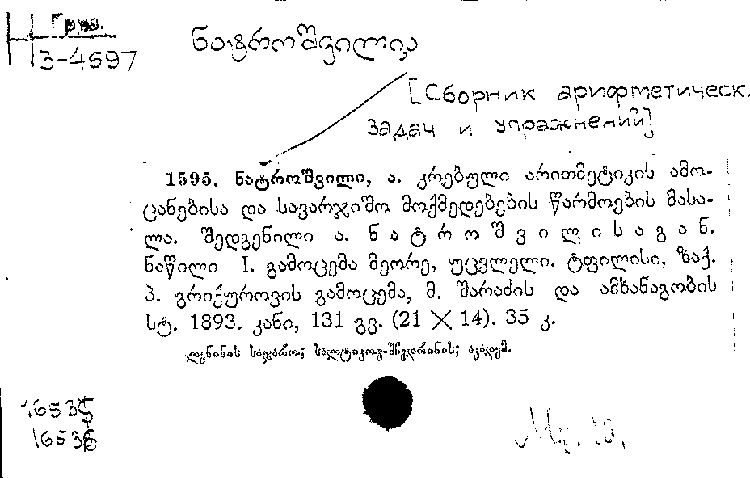 Груз.
3-4597
ნატროშვილი, ა
[Сборник арифметическ.
задач и упражнений]
1595. ნატროშვილი, ა. კრებული არითმეტიკის ამო-
ცანებისა და სავარჯიშო მოქმედებების წარმოების მასა-
ლა. შედგენილი ა. ნატროშვილისაგან.
ნაწილი I. გამოცემა მეორე, უცვლელი. ტფილისი, ზაქ.
პ. გრიქუროვის გამოცემა, მ. შარაძის და ამხანაგობის
სტ. 1893. კანი, 131 გვ. (21 × 14). 35 კ.
ლენინის საჯარო; სალტიკოვ-შჩედრინის; აკადემ.
16535
16536